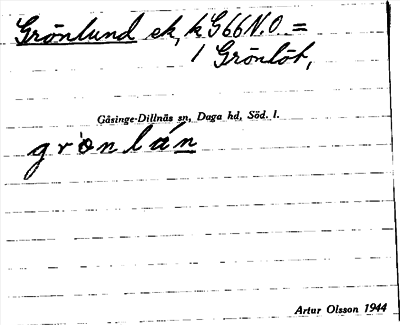 Grönlund ek, k G66 N.O. =
1 Grönlöt,
Gåsinge-Dillnäs sn, Daga hd, Söd. l.
grönlán
Artur Olsson 1944